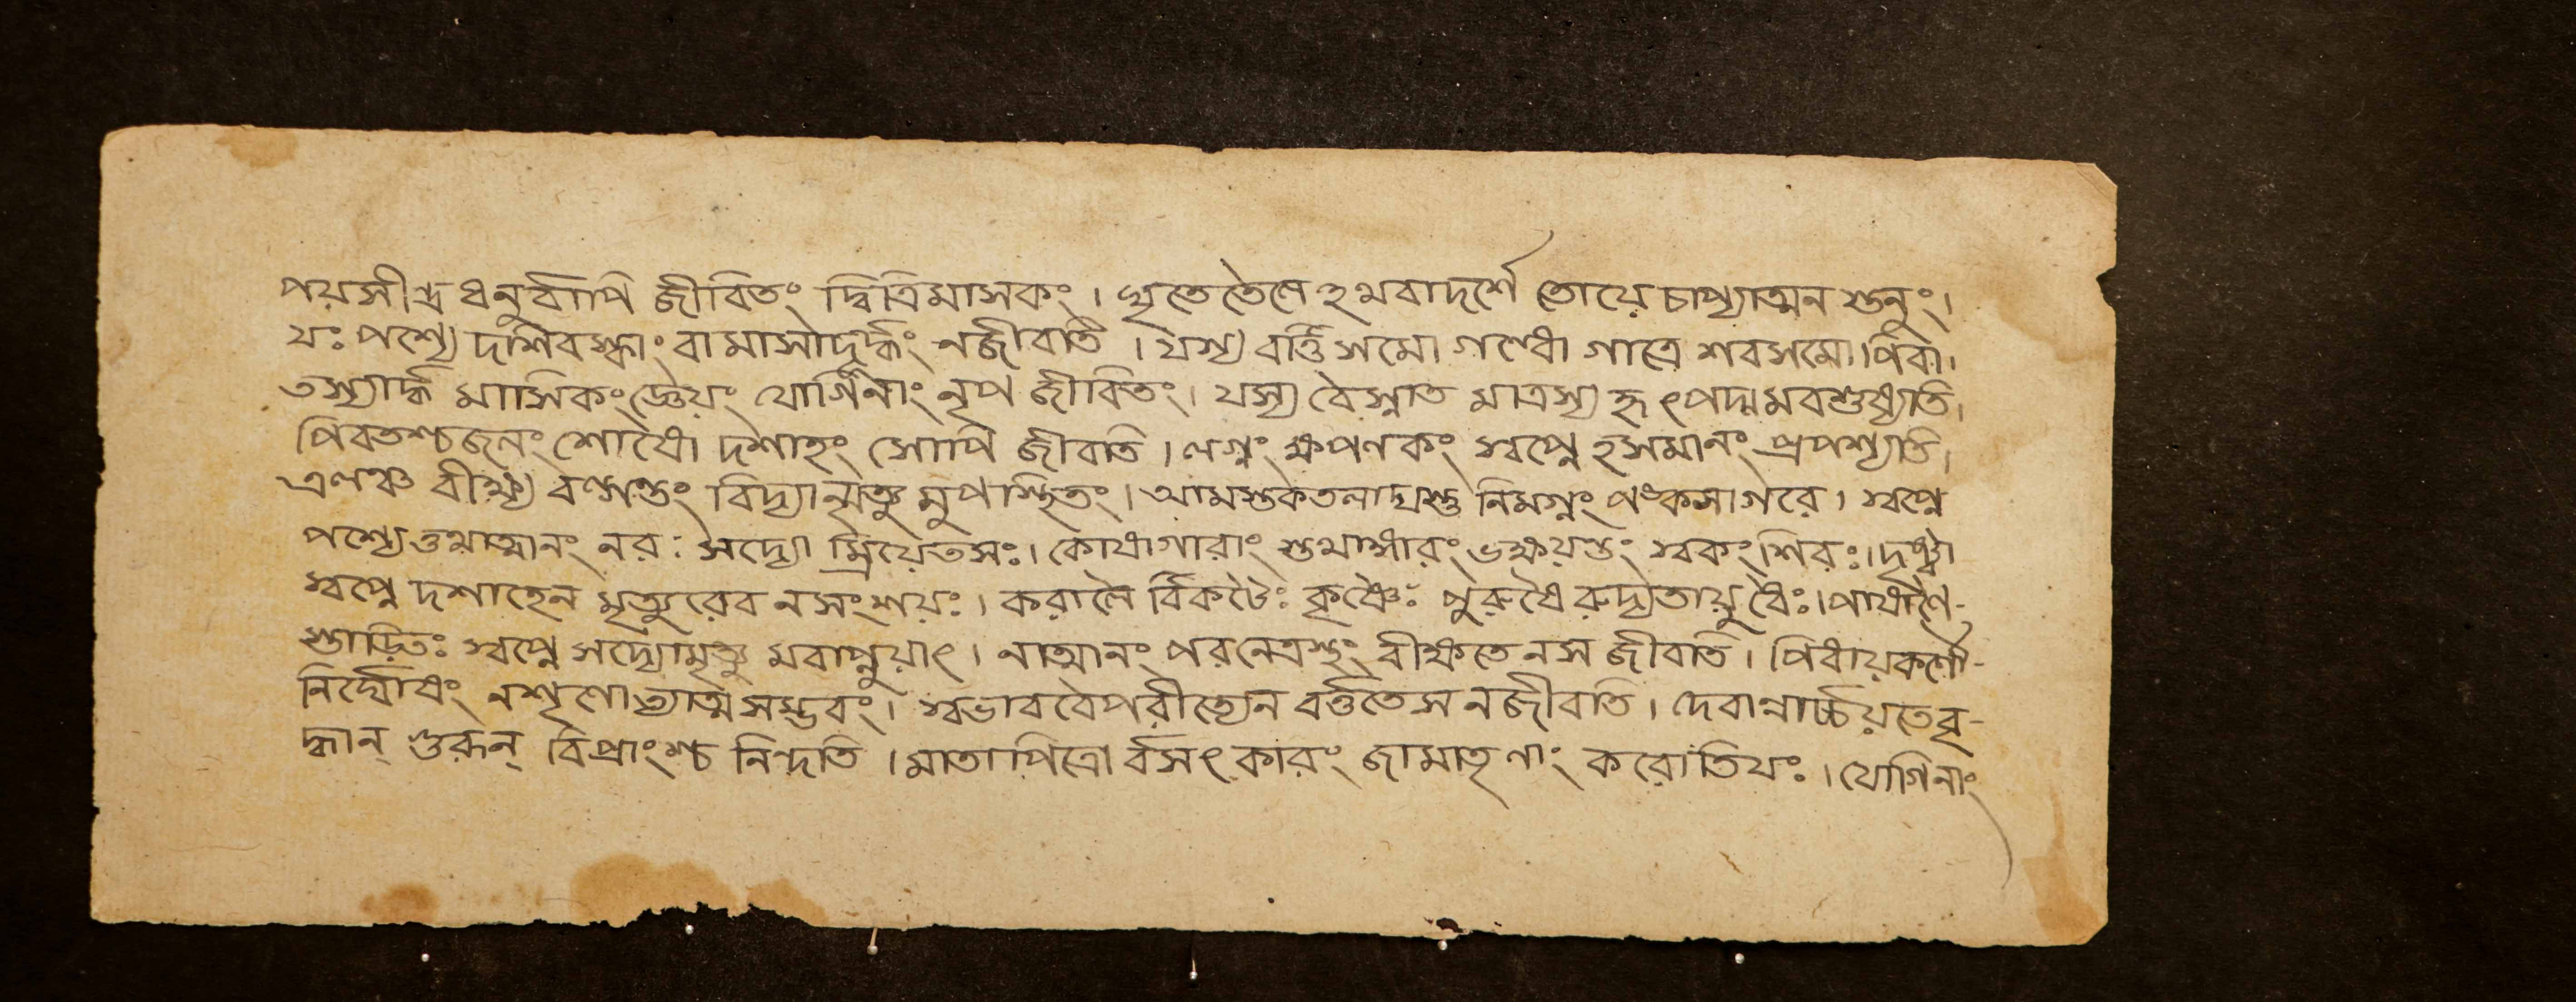 পয়সীন্দ্র ধনুর্বাপি জীবিতং দ্বিত্রিমাসকং । ঘৃতে তৈলেঽথবাদর্শে তোয়ে চাপ্যাত্মন স্তনুং ।
যঃ পশ্যে দশিরস্কাং বা মাসাদূর্দ্ধং নজীবতি । যস্য বর্ত্তিসমো গন্ধো গাত্রে শবসমোপিবা ।
তস্যার্দ্ধ মাসিকং জ্ঞেয়ং যোগিনাং নৃপ জীবিতং । যস্য বৈ স্নাত মাত্রস্য হৃৎপদ্মমবশুষ্যতি ।
পিবতশ্চজলং শোষো দশাহং সোপি জীবতি । লগ্নং ক্ষপণকং স্বপ্নে হসমানং প্রপশ্যতি ।
এলঞ্চ বীক্ষ্য বল্গন্তং বিদ্যান্মৃত্যু মুপস্থিতং । আমস্তকতলাদ্যস্তু নিমগ্নং পঙ্কসাগরে । স্বপ্নে
পশ্যেত্তথাত্মানং নরঃ সদ্যো ম্রিয়েতসঃ । কেশাঙ্গারাং স্তথাঙ্গারং ভক্ষয়ন্তং স্বকং শিরঃ । দৃষ্ট্বা
স্বপ্নে দশাহেন মৃত্যুরেব নসংশয়ঃ । করালৈ র্বিকটৈঃ কৃষ্ণৈঃ পুরুষৈ রুদ্যতায়ুধৈঃ । পাষাণৈ-
স্তাড়িতঃ স্বপ্নে সদ্যোমৃত্যু মবাপ্নুয়াৎ । নাত্মানং পরনেত্রস্থং বীক্ষতে নস জীবতি । পিধায়কর্ণৌ-
নির্ঘোষং নশৃণোত্যাত্মসম্ভবং । স্বভাব বৈপরীত্যেন বর্ত্ততে স নজীবতি । দেবান্নার্চ্চয়তে বৃ-
দ্ধান্ গুরূন্ বিপ্রাংশ্চ নিন্দতি । মাতাপিত্রো র্বসৎকারং জামাতৃণাং করোতিযঃ । যোগিনাং